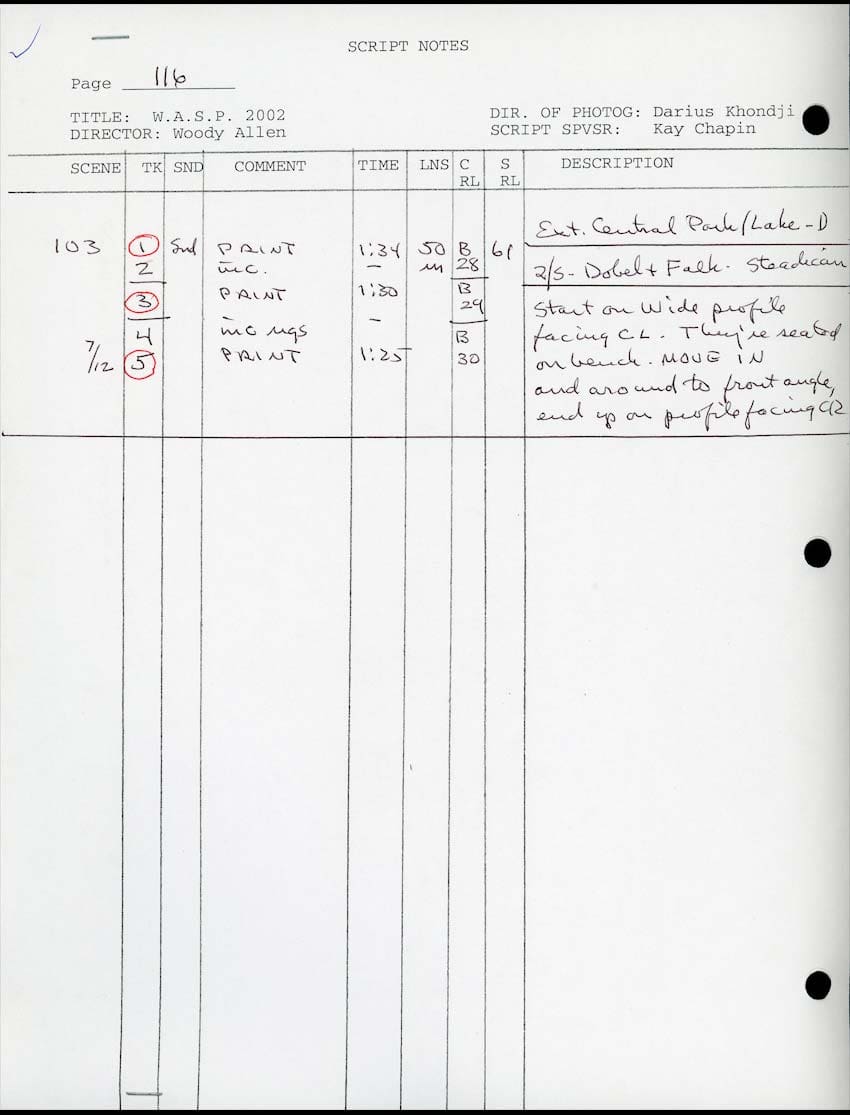 SCRIPT NOTES
Page 116
TITLE: W.A.S.P. 2002 DIR. OF PHOTOG: Darius Khondji
DIRECTOR: Woody Allen SCRIPT SPVSR: Kay Chapin
SCENE TK SND COMMENT TIME LNS C S DESCRIPTION
RL RL
Ext. Central Park/Lake - D
103 1 Snd PRINT 1:34 50 B 61
2 inc. — m 28 2/S - Dobel + Falk. Steadicam
3 PRINT 1:30 B
29 Start on Wide profile
4 inc ngs — B facing CL. They're seated
7/12 5 PRINT 1:25 30 on bench. MOVE IN
and around to front angle,
end up on profile facing CR